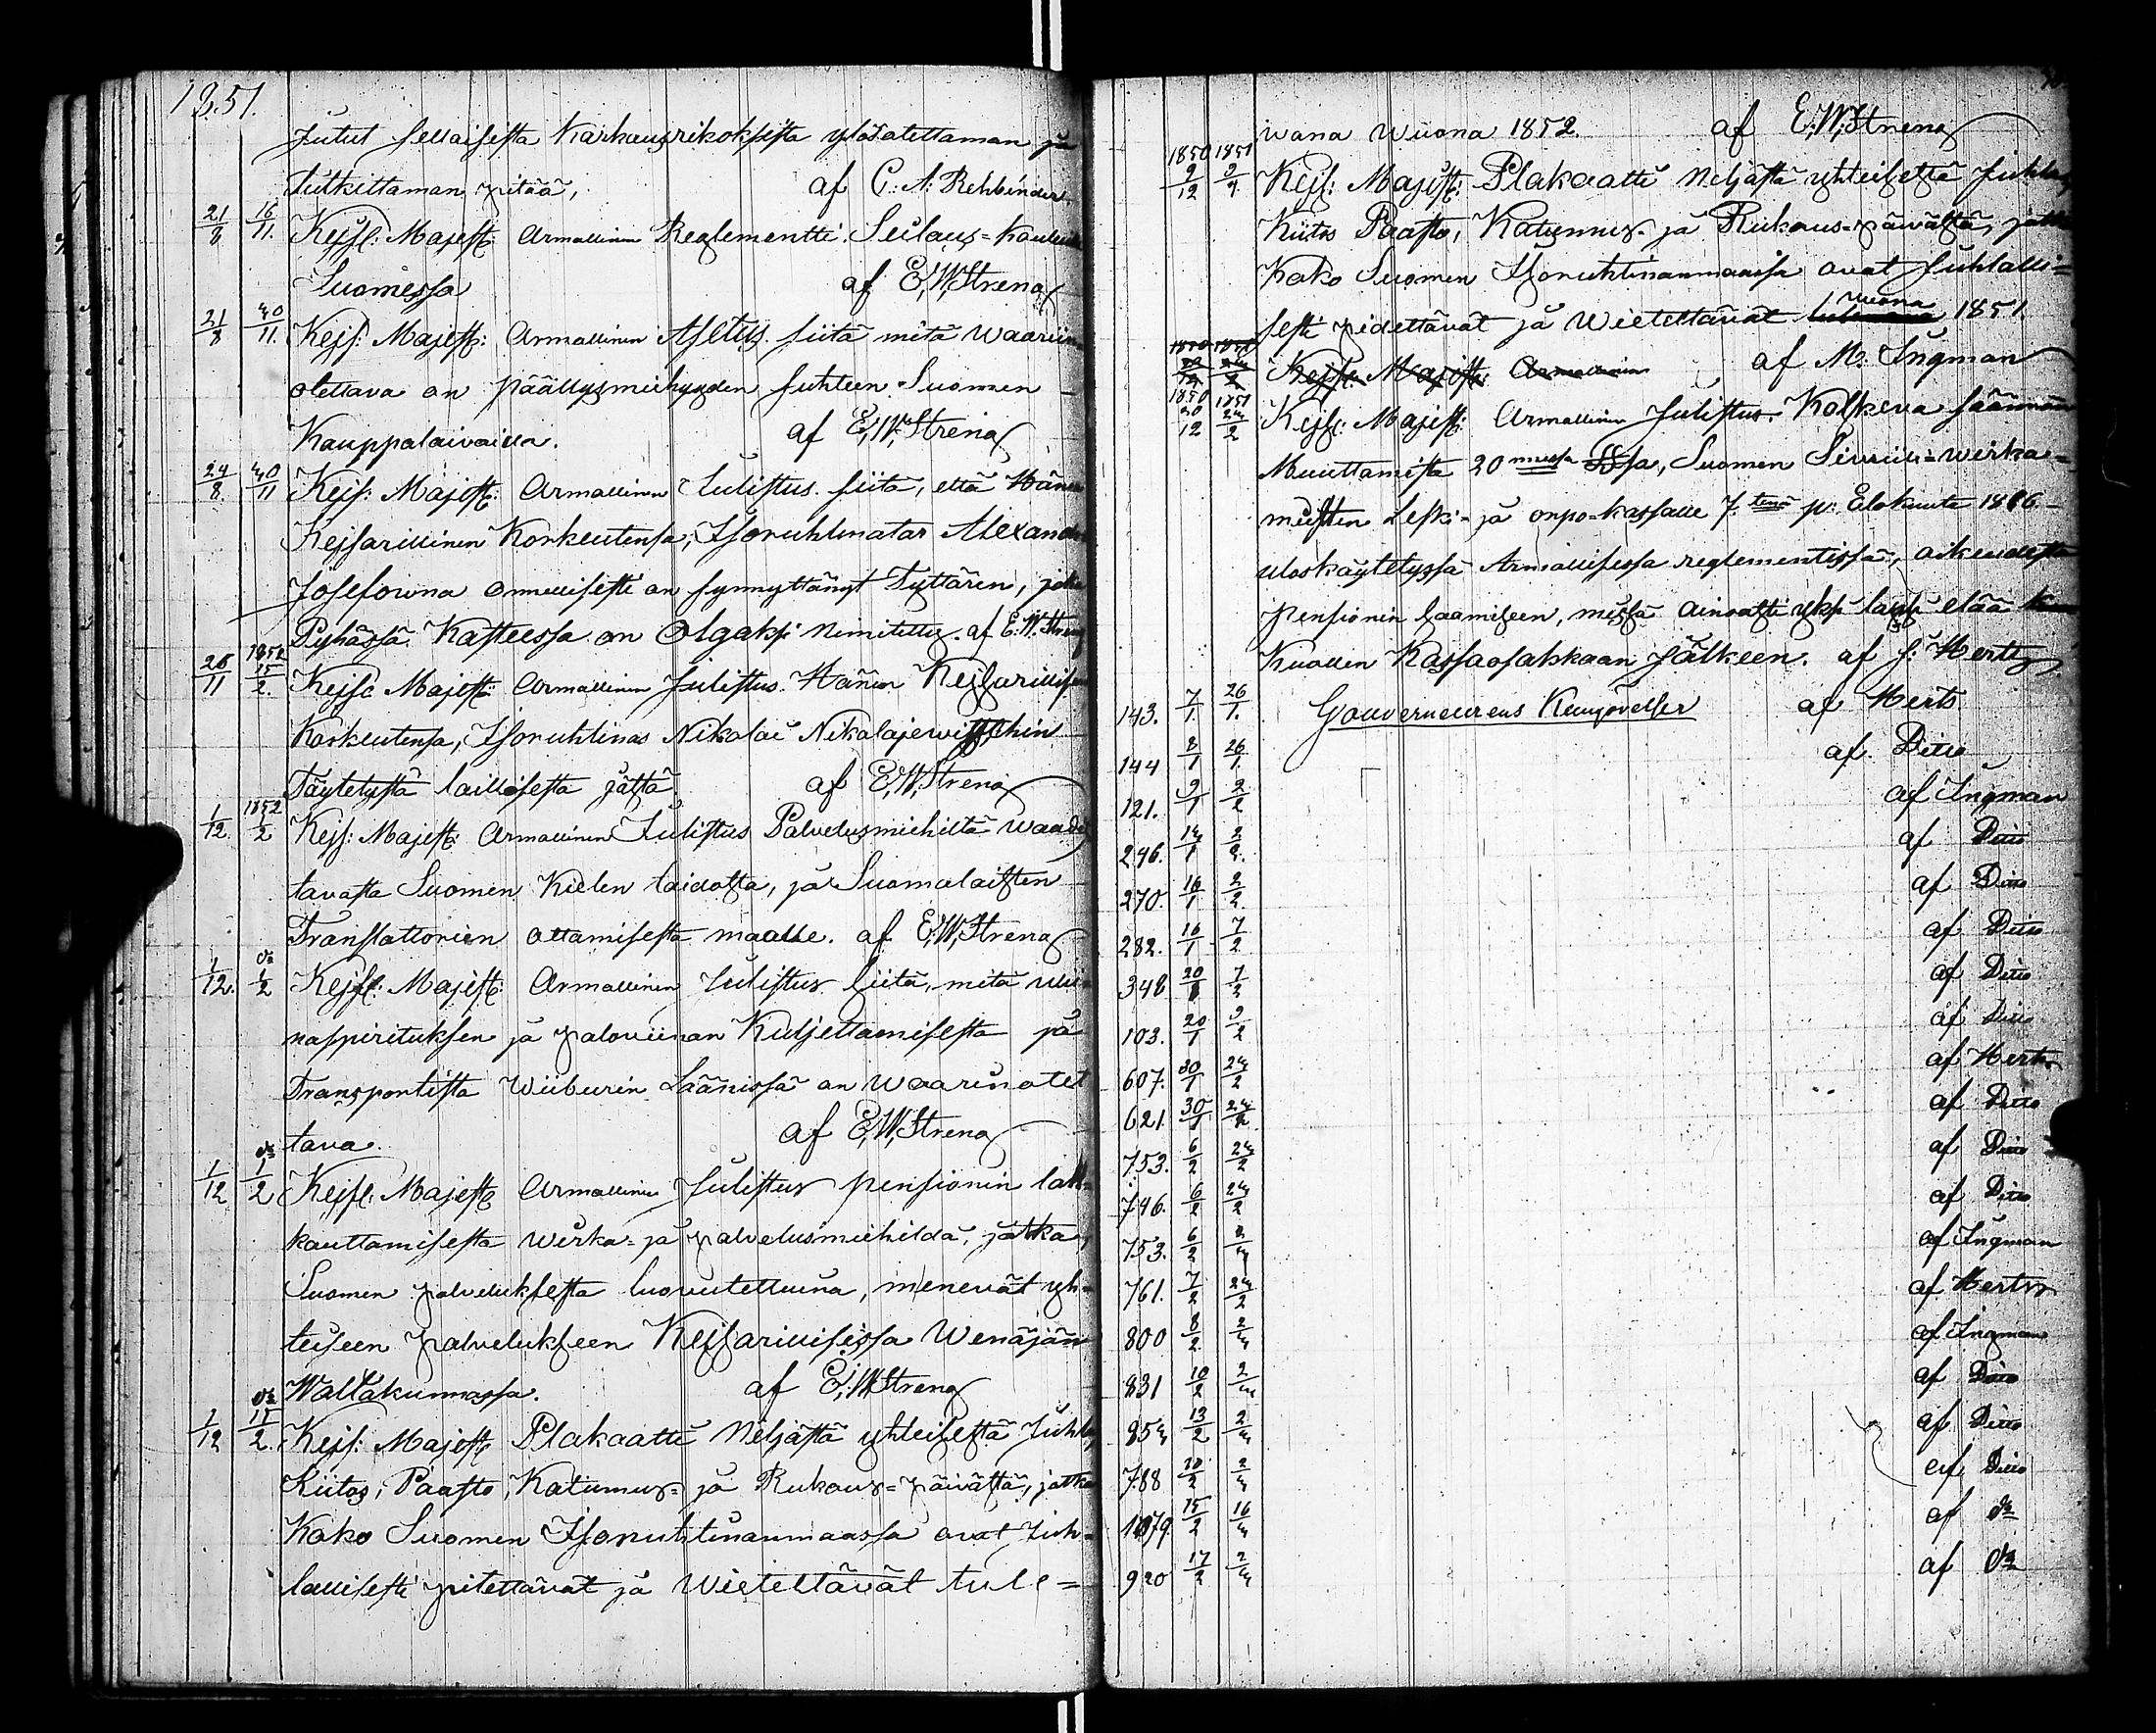 1851.
Jutut sellaisesta Karkausrikoksista ylösatettaman ja
Tutkittaman pitää, af C: A: Rehbinder.
21/8 16/11. Kejsl: Majest: Armallinen Reglementti Seilaus=Kouluista
Suomessa af E. W. Streng
21/8 20/11. Kejs: Majest: Armallinen Asetus siitä mitä waariin
otettava on päällysmiehyyden suhteen Suomen
Kauppalaivoissa. af E. W. Streng
24/8. 20/11 Kejs: Majest: Armallinen Julistus siitä, että Hänen
Kejsarillinen Korkeutensa, Isoruhtinatar Alexandra
Josefowna onnellisesti on synnyttänyt Tyttären, joka
Pyhässä Kasteessa on Olgaksi nimitetty. af E. W. Streng
26/11 1852 15/2. Kejsl Majest: Armallinen Julistus Hänen Kejsarillisen
Korkeutensa, Isoruhtinas Nikolai Nikolajewitschin
Täytetystä laillisesta jästä. af E. W. Streng
1/12. 1852 1/2 Kejs: Majest: Armallinen Julistus Palvelusmiehiltä waadit
tavasta Suomen Kielen taidosta, ja Suomalaisten
Translattorien ottamisesta maalle. af E. W. Streng
1/12. do 1/2 Kejsl: Majest: Armallinen Julistus siitä, mitä wii
nappirituksen ja paloviinan Kuljettamisesta ja
Transportista Wiiburin Läänissä on waarinotet
tava. af E. W. Streng
1/12 do 1/2 Kejsl. Majest: Armallinen Julistus pensionin lak=
kauttamisesta wirka= ja palvelusmiehildä, jotka,
Suomen palveluksesta luovutettuina, menevät yh=
teiseen palvelukseen Kejsarillisessa Wenäjän
Waltakunnassa. af E. W. Streng
1/12 do 15/2. Kejs: Majest: Plakaatti Neljästä yhteisestä Juhla
Kiitos, Paasto, Katumus= ja Rukous=päivästä, jotka
Koko Suomen Isoruhtinanmaassa ovat Juh=
lallisesti pitettävät ja Wietettävät tule=
wana wuona 1852. af E. W. Streng
1850 1851
2/12 Kejs: Majest: Plakaatti Neljästä yhteisestä Juhla
Kiitos Paasto, Katumus= ja Rukous=päivästä, jotka
Koko Suomen Isoruhtinanmaassa ovat Juhlalli=
sesti pidettävät ja Wietettävät wuona 1851
Kejsl: Majest: Armallinen af M. Ingman
1850 1851
20/12 24/2 Kejsl: Majest: Armallinen Julistus Koskeva säännön
Muuttamista 20 nnessä §§sa, Suomen Siwiili=wirka=
miesten Leski= ja orpo=kassalle 7. tenä p: Elokuuta 18 6
uloskäytetyssä Armallisessa reglementissä, oikeudesta
pensionin saamiseen, missä ainoasti yksi lapsi elää
Kuollen Kassaosakkaan jälkeen. af J: Herts
143. 7/1. 26/1. Gouverneurens Kungörelser af Herts
144 8/1 26/1. af Ditto
121. 9/1 2/2 af Ingman
246. 14/1 2/2. af Ditto
270. 16/1 2/2. af Ditto
282. 16/1 7/2 af Ditto
348 20/1 7/2 af Ditto
103. 20/1 9/2 af Ditto
607. 30/1 24/2 af Herts
621. 30/1 24/2 af Ditto
753. 6/2 24/2 af Ditto
746. 6/2 24/2 af Ditto
753. 6/2 2/4 af Ingman
761. 7/2 24/2 af Herts
800 8/2 2/4 af Ingman
831 10/2 2/4 af Ditto
854 13/2 2/4 af Ditto
788 10/2 2/4 af Ditto
1079 15/2 16/4 af do
920 17/2 2/4 af do